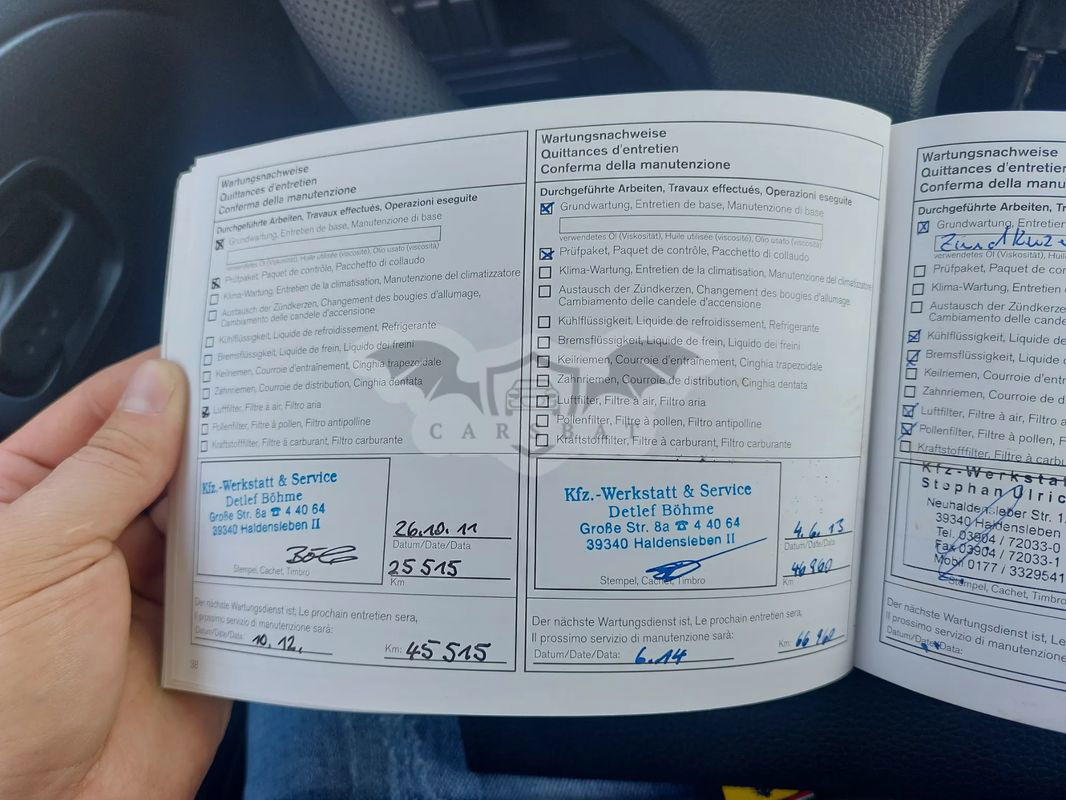 Wartungsnachweise
Quittances d'entretien
Conferma della manutenzione
Durchgeführte Arbeiten, Travaux effectués, Operazioni eseguite
Grundwartung, Entretien de base, Manutenzione di base
verwendetes Öl (Viskosität), Huile utilisée (viscosité), Olio usato (viscosità)
Prüfpaket, Paquet de contrôle, Pacchetto di collaudo
Klima-Wartung, Entretien de la climatisation, Manutenzione del climatizzatore
Austausch der Zündkerzen, Changement des bougies d'allumage,
Cambiamento delle candele d'accensione
Kühlflüssigkeit, Liquide de refroidissement, Refrigerante
Bremsflüssigkeit, Liquide de frein, Liquido dei freini
Keilriemen, Courroie d'entraînement, Cinghia trapezoidale
Zahnriemen, Courroie de distribution, Cinghia dentata
Luftfilter, Filtre à air, Filtro aria
Pollenfilter, Filtre à pollen, Filtro antipolline
Kraftstofffilter, Filtre à carburant, Filtro carburante
Kfz.-Werkstatt & Service
Detlef Böhme
Große Str. 8a ☎ 4 40 64
39340 Haldensleben II
Stempel, Cachet, Timbro
26.10.11
Datum/Date/Data
25 515
Km
Der nächste Wartungsdienst ist, Le prochain entretien sera,
Il prossimo servizio di manutenzione sarà:
Datum/Date/Data: 10.12. Km: 45 515
38
Wartungsnachweise
Quittances d'entretien
Conferma della manutenzione
Durchgeführte Arbeiten, Travaux effectués, Operazioni eseguite
Grundwartung, Entretien de base, Manutenzione di base
verwendetes Öl (Viskosität), Huile utilisée (viscosité), Olio usato (viscosità)
Prüfpaket, Paquet de contrôle, Pacchetto di collaudo
Klima-Wartung, Entretien de la climatisation, Manutenzione del climatizzatore
Austausch der Zündkerzen, Changement des bougies d'allumage,
Cambiamento delle candele d'accensione
Kühlflüssigkeit, Liquide de refroidissement, Refrigerante
Bremsflüssigkeit, Liquide de frein, Liquido dei freini
Keilriemen, Courroie d'entraînement, Cinghia trapezoidale
Zahnriemen, Courroie de distribution, Cinghia dentata
Luftfilter, Filtre à air, Filtro aria
Pollenfilter, Filtre à pollen, Filtro antipolline
Kraftstofffilter, Filtre à carburant, Filtro carburante
Kfz.-Werkstatt & Service
Detlef Böhme
Große Str. 8a ☎ 4 40 64
39340 Haldensleben II
Stempel, Cachet, Timbro
4.6.13
Datum/Date/Data
46 960
Km
Der nächste Wartungsdienst ist, Le prochain entretien sera,
Il prossimo servizio di manutenzione sarà:
Datum/Date/Data: 6.14 Km: 66 960
Wartungsnachweise
Quittances d'entretien
Conferma della manu
Durchgeführte Arbeiten, Tr
Grundwartung, Entretien
Zündkerz
verwendetes Öl (Viskosität), Huil
Prüfpaket, Paquet de con
Klima-Wartung, Entretien
Austausch der Zündkerzen
Cambiamento delle cande
Kühlflüssigkeit, Liquide de
Bremsflüssigkeit, Liquide
Keilriemen, Courroie d'en
Zahnriemen, Courroie de
Luftfilter, Filtre à air, Filtro
Pollenfilter, Filtre à pollen, F
Kraftstofffilter, Filtre à carbu
Kfz-Werkstat
Stephan Ulric
Neuhaldensleber Str. 1
39340 Haldensleben
Tel. 03904 / 72033-0
Fax 03904 / 72033-1
Mobil 0177 / 3329541
Stempel, Cachet, Timbro
Der nächste Wartungsdienst ist, Le
Il prossimo servizio di manutenzione
Datum/Date/Data:
CARSBAT